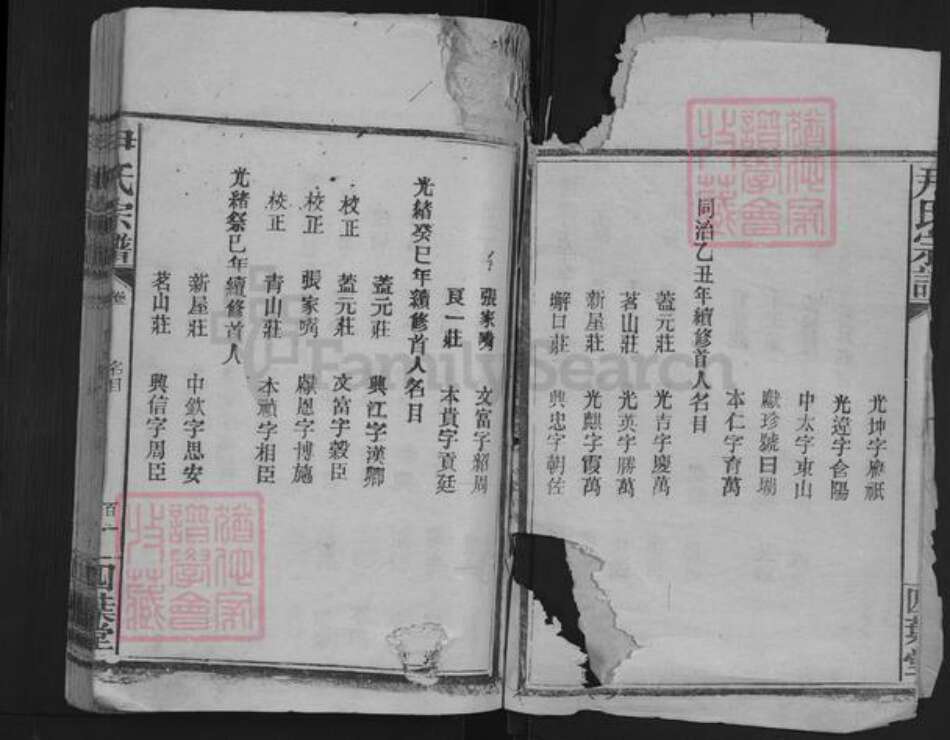 尹氏宗譜
光坤字廉祇
光瑝字會陽
中太字東山
獻珍號曰瑞
本仁字育萬
同治乙丑年續修首人名目
蓋元莊 光吉字慶萬
茗山莊 光英字勝萬
新屋莊 光麒字霞萬
獬口莊 興忠字朝佐
張家嘴 文富字紹周
艮一莊 本貢字貢廷
光緒癸巳年續修首人名目
蓋元莊 興江字漢卿
校正 蓋元莊 文富字毅臣
校正 張家嘴 字博施
校正 青山莊 本禎字相臣
光緒祭巳年續修首人
新屋莊 中欽字思安
茗山莊 興信字周臣
尹氏宗譜
卷
名目
四葉堂
猶他家譜學會收藏
猶他家譜學會收藏
FamilySearch